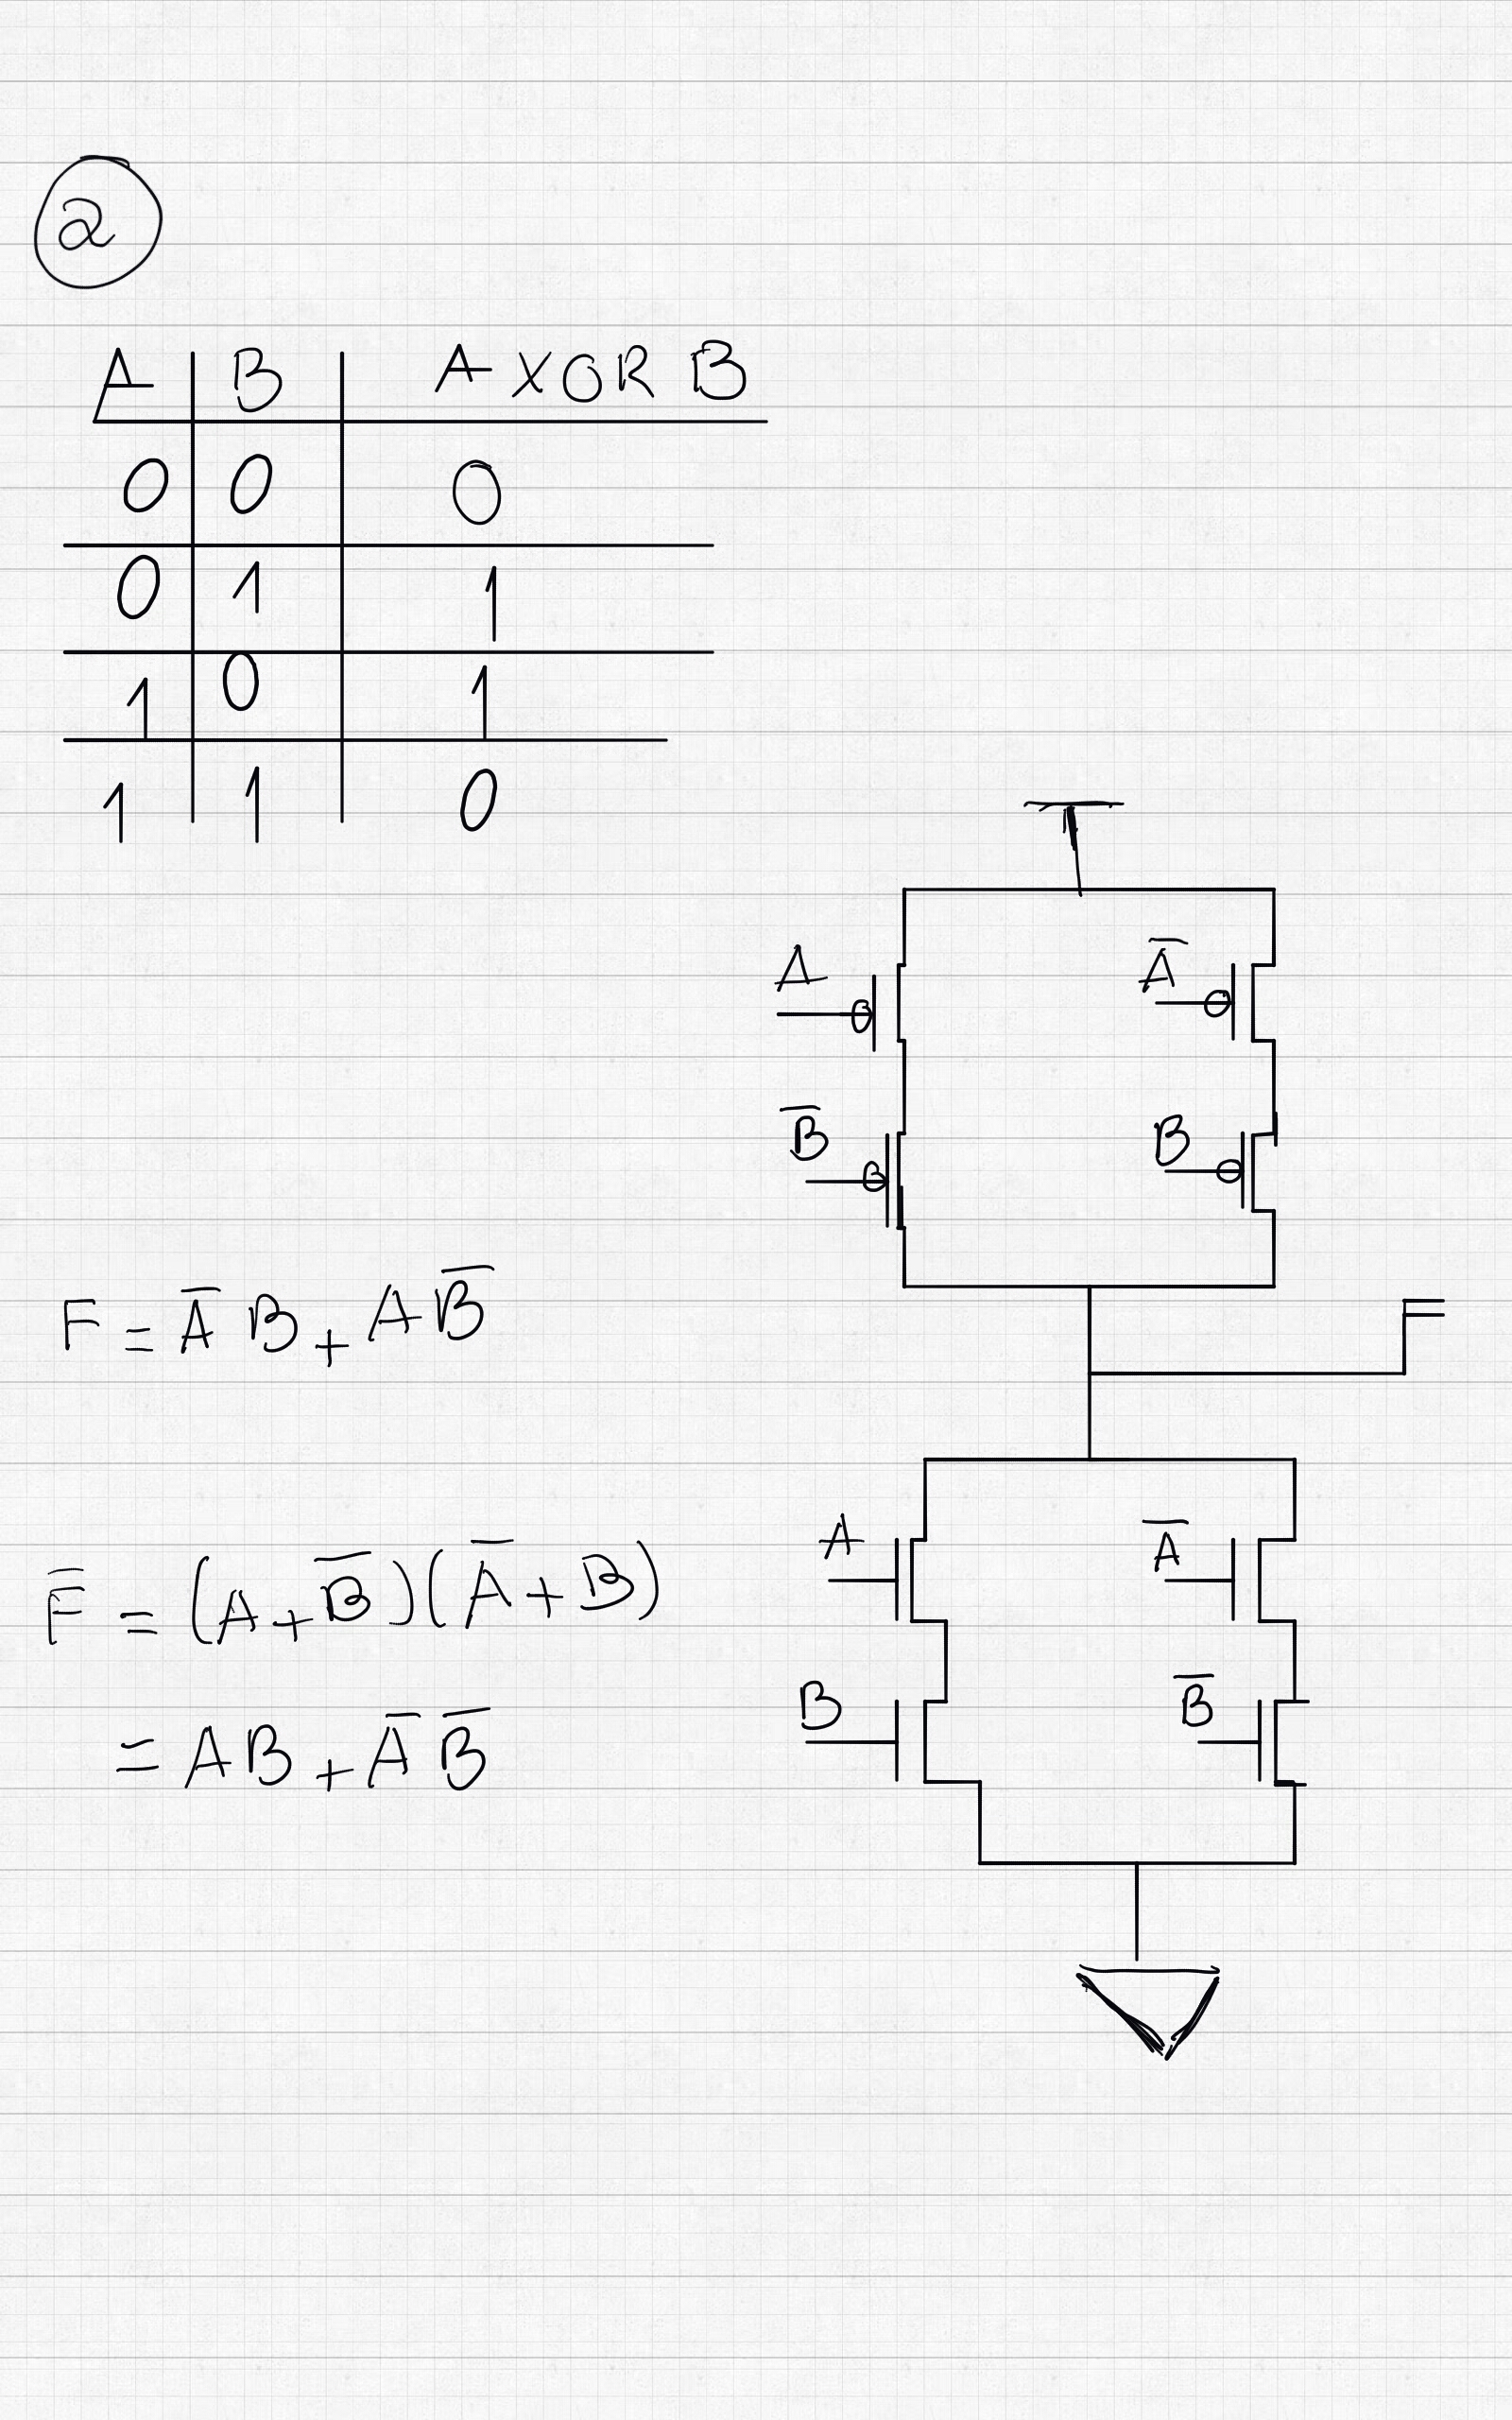 a
A B A XOR B
0 0 0
0 1 1
1 0 1
1 1 0
A A̅
B̅ B
F = A̅ B + A B̅
F
F̅ = (A + B̅)(A̅ + B)
A A̅
B B̅
= A B + A̅ B̅